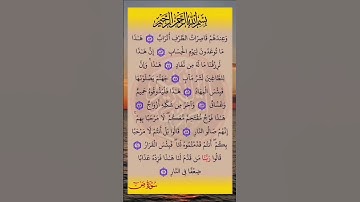 بِسْمِ اللَّهِ الرَّحْمَنِ الرَّحِيمِ
وَعِندَهُمْ قَاصِرَاتُ الطَّرْفِ أَتْرَابٌ ﴿٥٢﴾ هَـٰذَا
مَا تُوعَدُونَ لِيَوْمِ الْحِسَابِ ﴿٥٣﴾ إِنَّ هَـٰذَا
لَرِزْقُنَا مَا لَهُ مِن نَّفَادٍ ﴿٥٤﴾ هَـٰذَا ۚ وَإِنَّ
لِلطَّاغِينَ لَشَرَّ مَآبٍ ﴿٥٥﴾ جَهَنَّمَ يَصْلَوْنَهَا
فَبِئْسَ الْمِهَادُ ﴿٥٦﴾ هَـٰذَا فَلْيَذُوقُوهُ حَمِيمٌ
وَغَسَّاقٌ ﴿٥٧﴾ وَآخَرُ مِن شَكْلِهِ أَزْوَاجٌ ﴿٥٨﴾
هَـٰذَا فَوْجٌ مُّقْتَحِمٌ مَّعَكُمْ ۖ لَا مَرْحَبًا بِهِمْ ۚ
إِنَّهُمْ صَالُو النَّارِ ﴿٥٩﴾ قَالُوا بَلْ أَنتُمْ لَا مَرْحَبًا
بِكُمْ ۖ أَنتُمْ قَدَّمْتُمُوهُ لَنَا ۖ فَبِئْسَ الْقَرَارُ ﴿٦٠﴾
قَالُوا رَبَّنَا مَن قَدَّمَ لَنَا هَـٰذَا فَزِدْهُ عَذَابًا
ضِعْفًا فِي النَّارِ ﴿٦١﴾
سُورَةُ ص